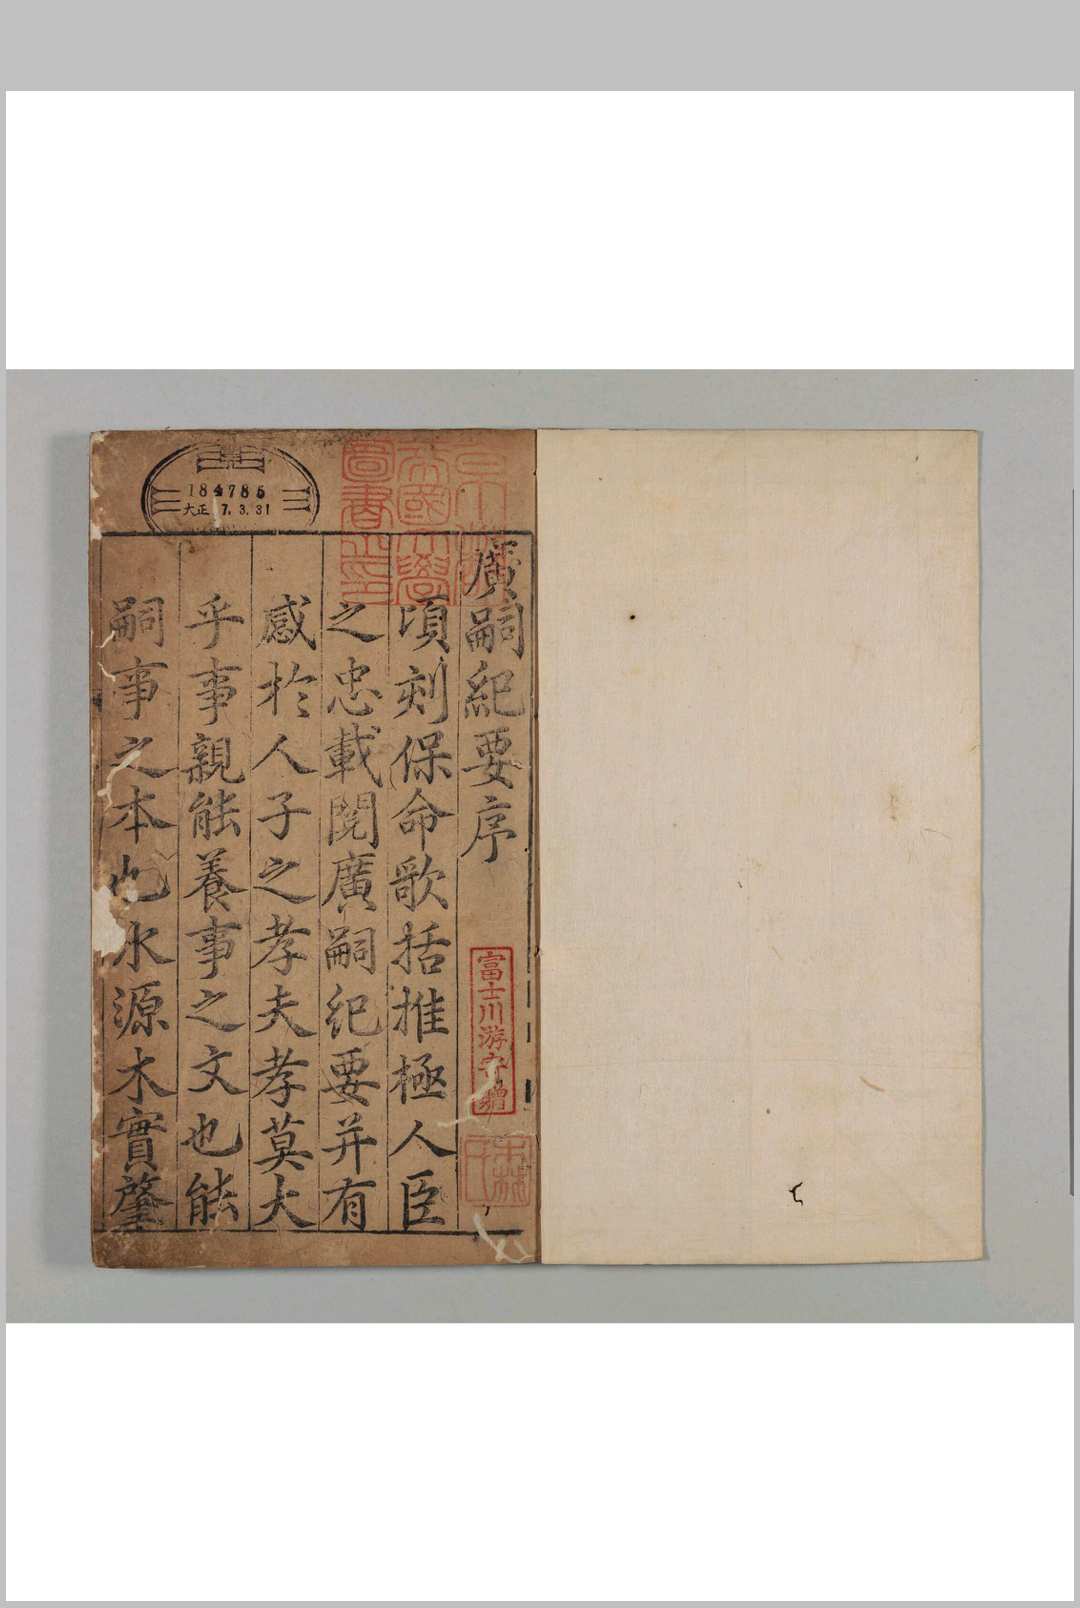 廣嗣紀要序
頃刻保命歌括推極人臣
之忠載閱廣嗣紀要并有
感於人子之孝夫孝莫大
乎事親能養事之文也能
嗣事之本也水源木實肇
184785
大正 7.3.31
京都帝國大學圖書之印
富士川游寄贈